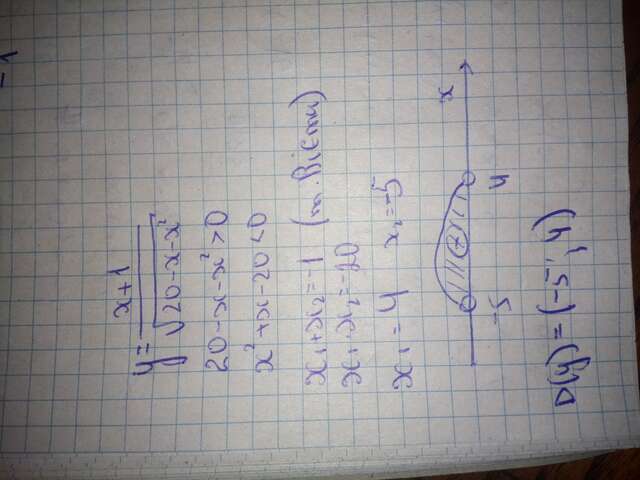 -1
y = x+1 / √20-x-x²
20-x-x²>0
x²+x-20<0
x₁+x₂=-1 (т. Вієти)
x₁·x₂=-20
x₁=4 x₂=-5
-5 4 x
D(y)=(-5;4)